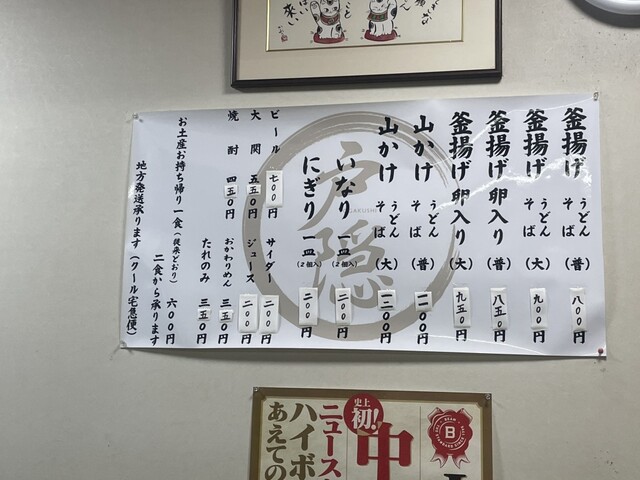 釜揚げ うどん そば (普) 八〇〇円
釜揚げ うどん そば (大) 九〇〇円
釜揚げ 卵入り (普) 八五〇円
釜揚げ 卵入り (大) 九五〇円
山かけ うどん そば (普) 一一〇〇円
山かけ うどん そば (大) 一二〇〇円
いなり 一皿 (2個入) 二〇〇円
にぎり 一皿 (2個入) 二〇〇円
ビール 七〇〇円
大関 五五〇円
焼酎 四五〇円
サイダー 二〇〇円
ジュース 二〇〇円
おかわりめん 三五〇円
たれのみ 三五〇円
お土産お持ち帰り 一食 (従来どおり) 六〇〇円
二食から承ります
地方発送承ります (クール宅急便)
戸隠
GAKUSHI
史上
初!
中
ニュース
ハイボ
あえての
B